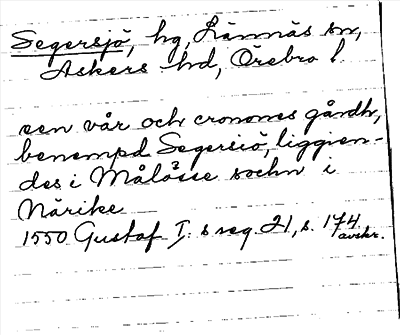 Segersjö, hg, Lännäs sn,
Askers hd, Örebro l
een vår och cronones gårdh,
benempd Segersiö, liggien-
des i Målåsse sochn i
Närike
1550 Gustaf I. s reg. 21, s. 174.
avskr.